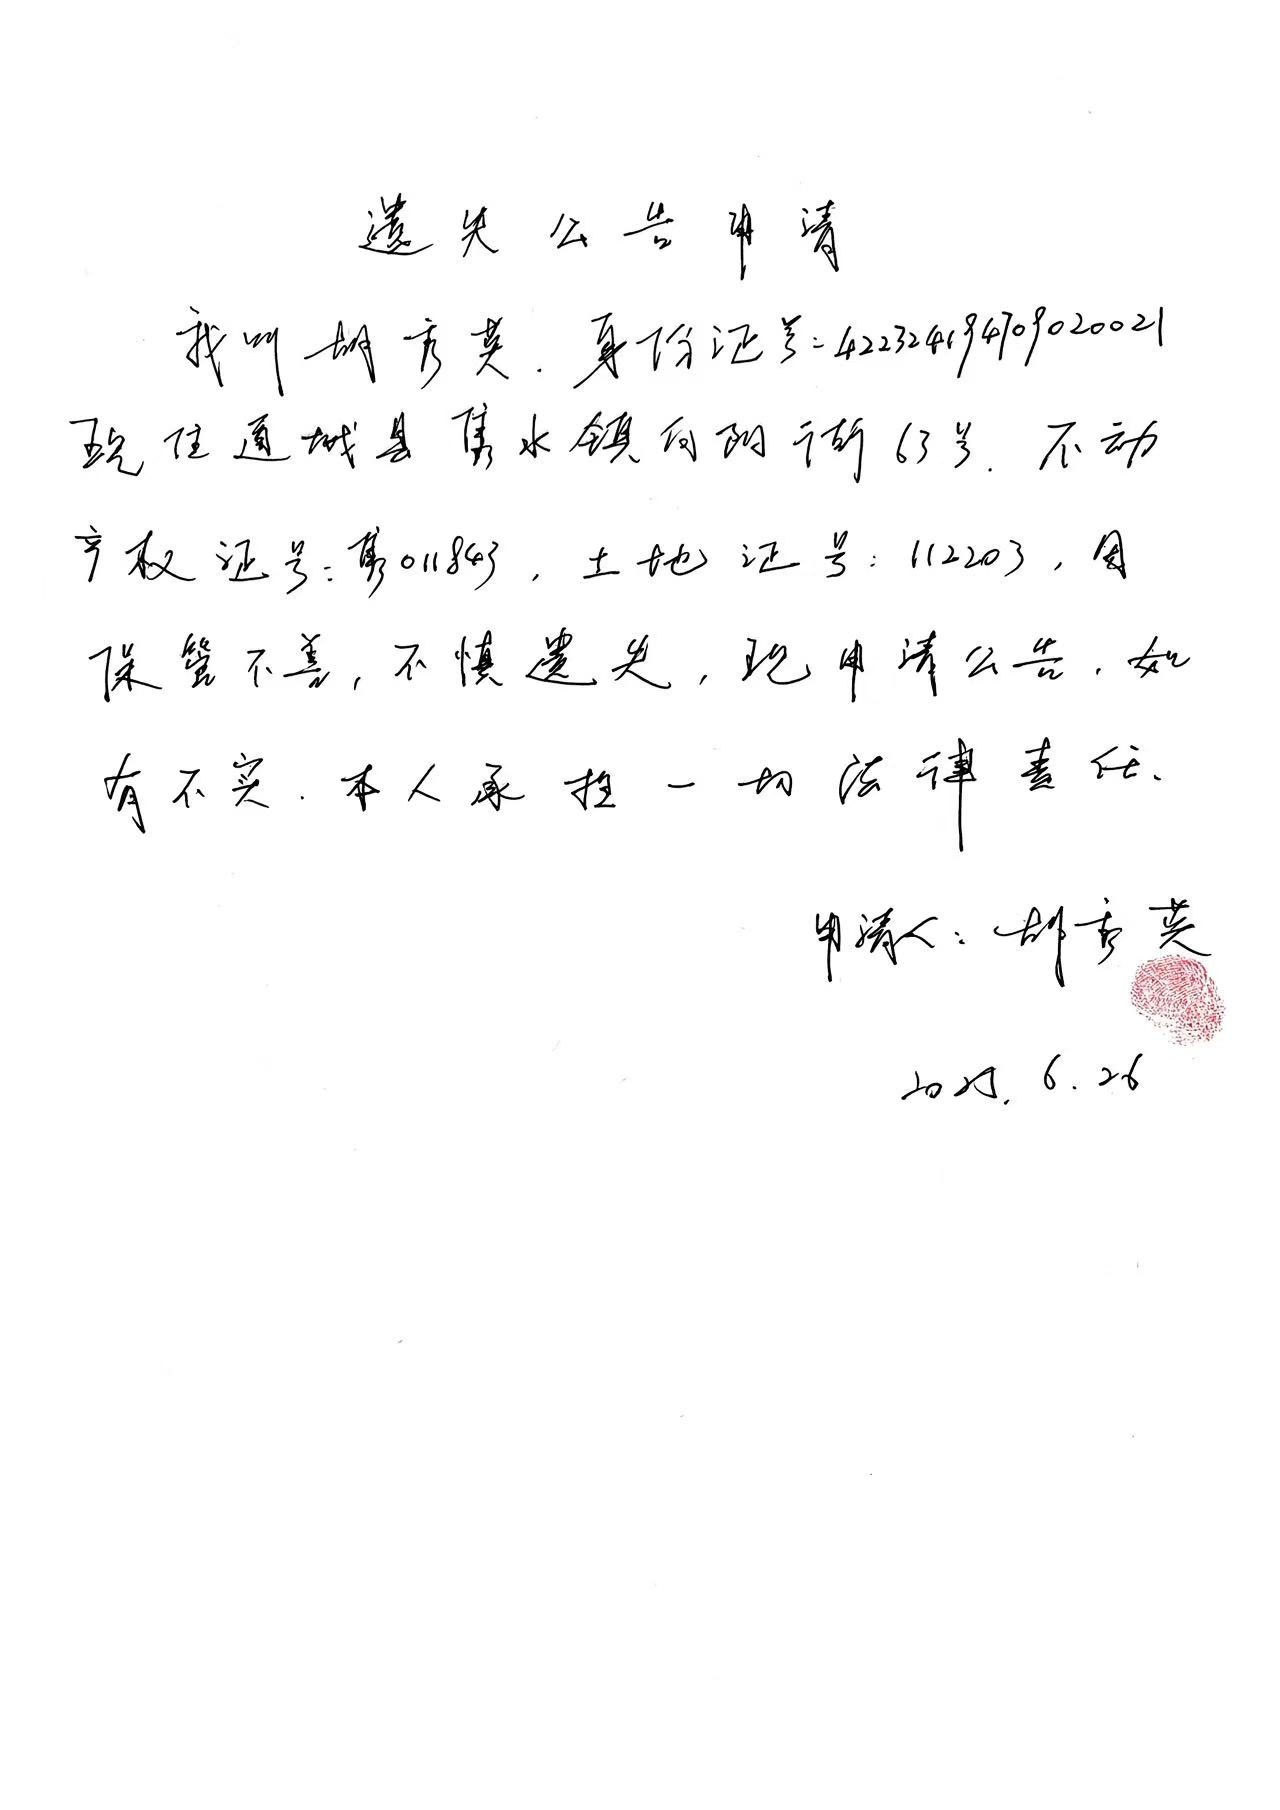 遗失公告申请
我叫胡秀英.身份证号:422324194709020021
现住通城县隽水镇向阳街63号.不动
产权证号:隽011843,土地证号:112203,因
保管不善,不慎遗失,现申请公告.如
有不实.本人承担一切法律责任.
申请人:胡秀英
2025.6.26